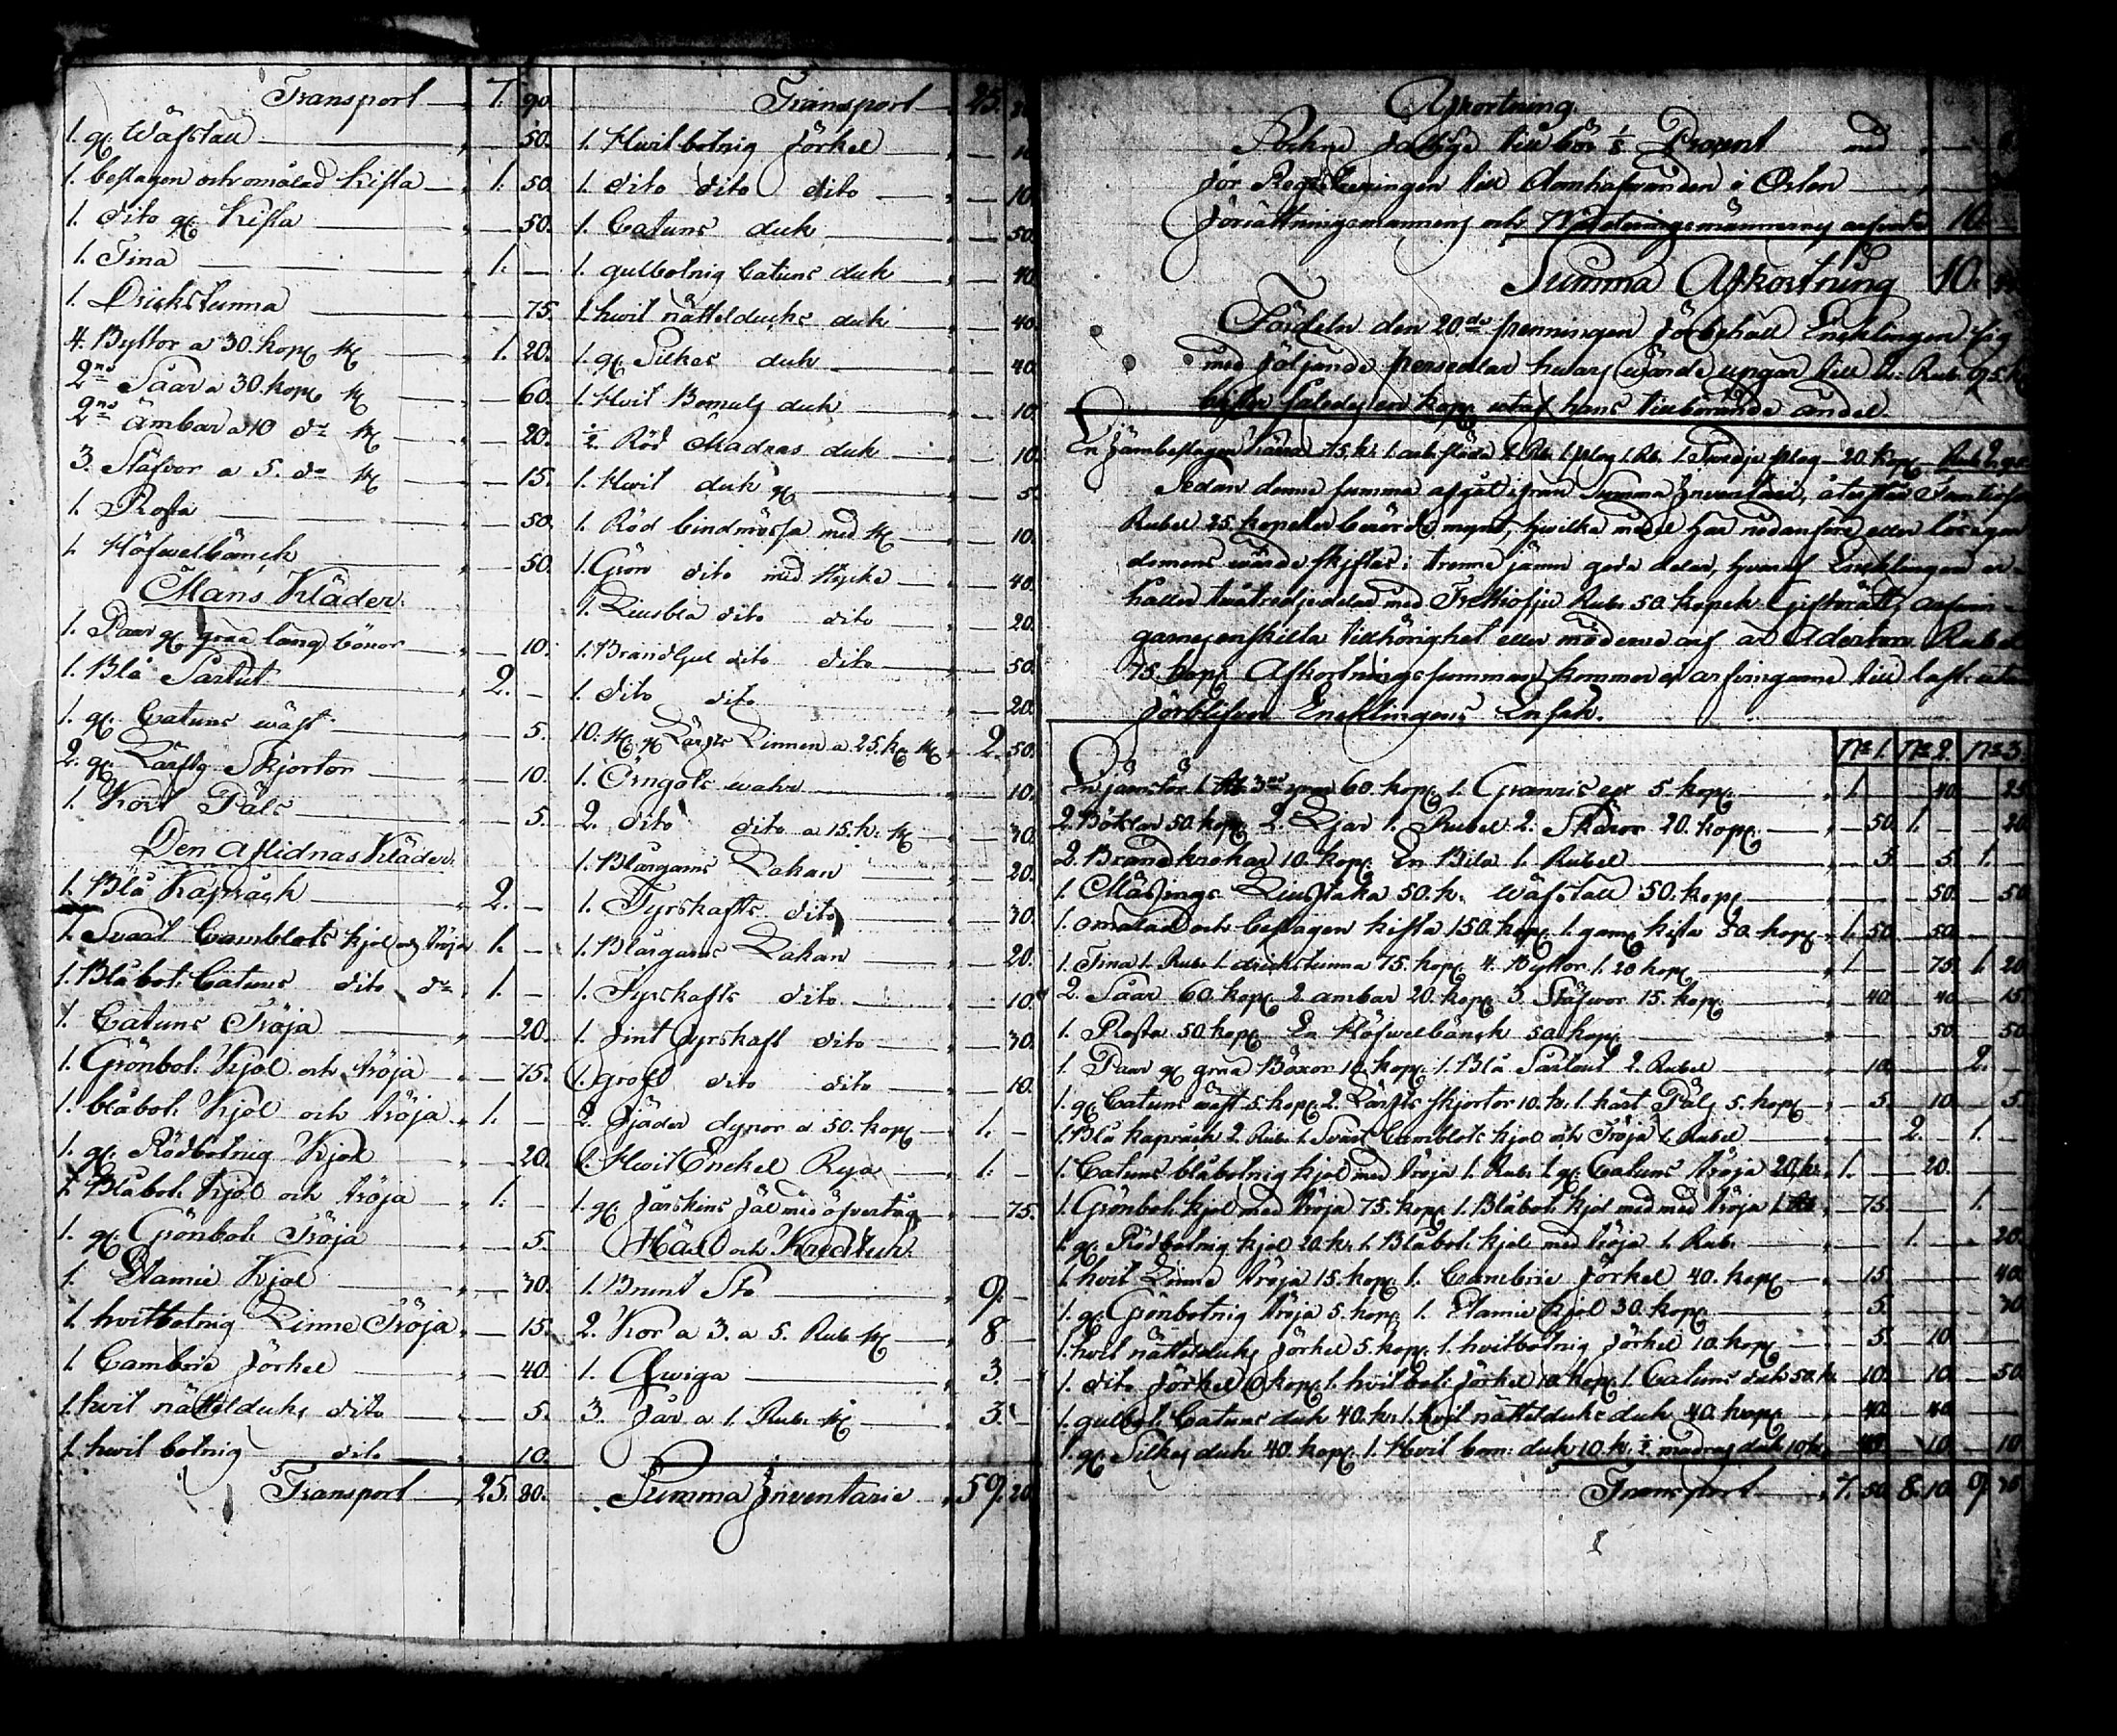 Transport 7. 90.
1. gl. Wäfstall 50.
1. beslagen och omålad Kista 1. 50.
1. dito gl. Kista 50.
1. Tina 1. —
1. Drickstunna 75.
4. Byttor a 30. kop. st. 1. 20.
2ne Såar a 30. kop. st. 60.
2ne ämbar a 10 do st. 20.
3. Stäfvor a 5. do st. 15.
1. Rosta 50.
1. Höfwelbänck 50.
Mans Kläder.
1. Paar gl. gråa lång böxor 10.
1. Blå Sartut 2. —
1. gl. Catuns wäst 5.
2. gl. Lärfts Skjortor 10.
1. Kort Päls 5.
Den Aflidnas Kläder
1. Blå Kapråck 2. —
1. Svart Camblots kjol och tröja 1. —
1. Blåbot. Catuns dito do 1. —
1. Catuns Tröja 20.
1. Grönbot. Kjol och tröja 75.
1. blåbot. Kjol och tröja 1. —
1. gl. Rödbotnig Kjol 20.
1. Blåbot. Kjol och tröja 1. —
1. gl. Grönbot. Tröja 5.
1. Etamie Kjol 30.
1. hvitbotnig Linne Tröja 15.
1. Cambrie förkel 40.
1. hvit nättelduks dito 5.
1. hwit botnig dito 10.
Transport 25. 80.
Transport 25. 80
1. Hwit botnig förkel 10
1. dito dito dito 10
1. Catuns duk 50.
1. gulbotnig Catuns duk 40.
1. hwit nättelducks duk 40.
1. gl. Silkes duk 40.
1. Hvit Bomuls duk 10.
½ Röd Madras duk 10.
1. Hwit duk gl. 5.
1. Röd bindmössa med st. 10.
1. Grön dito med stycke 40.
1. Liusbla dito dito 20.
1. Brandgul dito dito 50.
1. dito dito 20.
10. st. gl. Lärfts Linnen a 25. k. st. 2. 50.
1. Örngåts wahr 10.
2. dito dito a 15. k. st. 30.
1. Blårgarns Lakan 20.
1. Fyrskafts dito 30.
1. Blårgarns Lakan 20.
1. Fyrskafts dito 10.
1. fint fyrskaft dito 30.
1. groft dito dito 10.
2. fjäder dynor a 50. kop. 1. —
1. Hwit Enckel Rya 1. —
1. gl. fårskins fäl med öfvertåg 75.
Häst och Kreatur.
1. Brunt Sto 9. —
2. Kor a 3. a 5. Rub. st. 8 —
1. Qwiga 3. —
3. får a 1. Rub. st. 3. —
Summa Inventarie 59. 20
Afkortning
Sockne fattige till bör ⅛ Procent med
för Registreringen till Domhafvanden i Orten
förrättningsmannens och Wärderingsmännernes arfvode 10.
Summa Afkortning 10.
Fördeln den 20de penningen förbehåll Encklingen sig
med följande persedlar hwars wärde upgår till 2. Rub. 95. k.
en kop. utaf hans tillbörande andel.
En Järnbeslagen kärra 75. k. 1. arb. släda 1. Rb. 1. plog 20. kop. Rub. 2. 95
Sedan denna summa afgåt ifrån Summa Inventarie, återstår Femtiosex
Rubel 25. kopek. hwilka medel har nedanföre eller lösegen
domens wärde skiftas i trenne jämn goda delar, hwaraf Encklingen er
håller twåtredjedelar med Trettiosju Rub. 50. kopek. Giftorätt, arfwin
garnes enskilta tillhörighet eller möderne arf ar Aderton Rubel
75. kop. Afkortnings summan kommer ej arfwingarne till last utan
förblifver Encklingens Ensak.
No 1. No 2. No 3.
En järnstör 1. Rb. 60. kop. 1. 5. kop. 1. — 40. 25
2. Böklar 50. kop. 2. Ljar 1. Rubel 2. Skäror 20. kop. 50. 1. — 20
2. Brandkrokar 10. kop. En Bila 1. Rubel 5. 5. 1. —
1. Mässings Liusstaka 50. k. Wäfstall 50. kop. 50. 50
1. omålad och beslagen kista 150. kop. 1. gam. kista 50. kop. 1. 50. 50.
1. Tina 1. Rub. 1. drickstunna 75. kop. 4. Byttor 1. 20 kop. 1. — 75. 1. 20
2. Såar 60. kop. 2. ämbar 20. kop. 3. Stäfvor 15. kop. 40. 40. 15.
1. Rosta 50. kop. En Höfwelbänck 50. kop. 50. 50
1. Paar gl. gråa Böxor 10. kop. 1. Blå Sartout 2. Rubel 10. 2. —
1. gl. Catuns wäst 5. kop. 2. Lärfts skjortor 10. k. 1. kort Päls 5. kop. 5. 10. 5.
1. Blå kapråck 2. Rub. 1. Svart Camblots kjol och Tröja 1. Rubel 2. — 1. —
1. Catuns blåbotnig kjol med tröja 1. Rub. 1. gl. Catuns tröja 20. k. 1. — 20.
1. Grönbot. kjol med tröja 75. kop. 1. Blåbot. kjol med med tröja 1. Rb. 75. 1. —
1. gl. Rödbotnig kjol 20. k. 1. Blåbot. kjol med tröja 1. Rub. 1. — 20.
1. hvit Linne tröja 15. kop. 1. Cambrie förkel 40. kop. 15. 40.
1. gl. Grönbotnig tröja 5. kop. 1. Etamie kjol 30. kop. 5. 30
1. hvit nättelduks förkel 5. kop. 1. hvitbotnig förkel 10. kop. 5. 10.
1. dito förkel 10 kop. 1. hvitbot. förkel 10. kop. 1. Catuns duk 50. k. 10. 10. 50.
1. gulbot. Catuns duk 40. k. 1. hvit nättelduks duk 40. kop. 40. 40
1. gl. Silkes duk 40. kop. 1. Hvit bom. duk 10. k. ½ madras duk 10. k. 40. 10. 10
Transport 7. 50. 8. 10. 9.